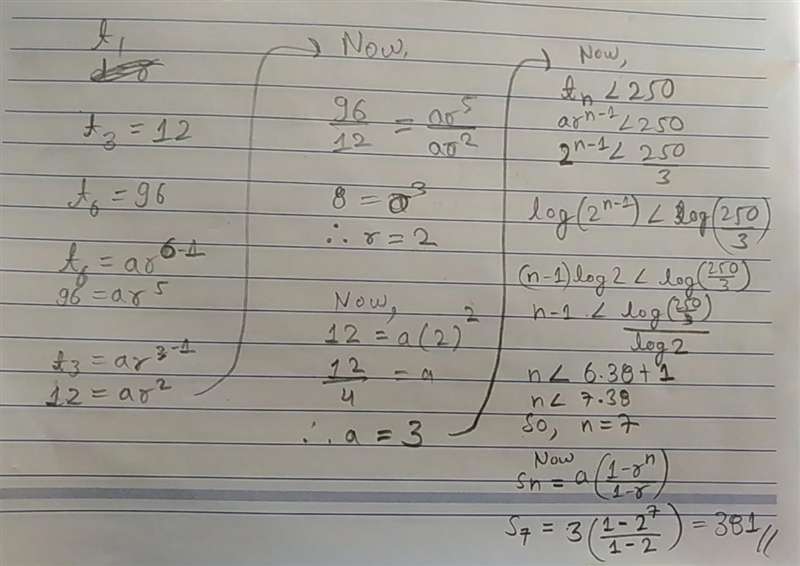 t₁
t₃ = 12
t₆ = 96
t₆ = ar⁶⁻¹
96 = ar⁵
t₃ = ar³⁻¹
12 = ar²
Now,
96/12 = ar⁵/ar²
8 = r³
∴ r = 2
Now,
12 = a(2)²
12/4 = a
∴ a = 3
Now,
tₙ < 250
arⁿ⁻¹ < 250
2ⁿ⁻¹ < 250/3
log(2ⁿ⁻¹) < log(250/3)
(n-1)log2 < log(250/3)
n-1 < log(250/3)/log2
n < 6.38+1
n < 7.38
So, n = 7
Now
Sₙ = a(1-rⁿ/1-r)
S₇ = 3(1-2⁷/1-2) = 381//